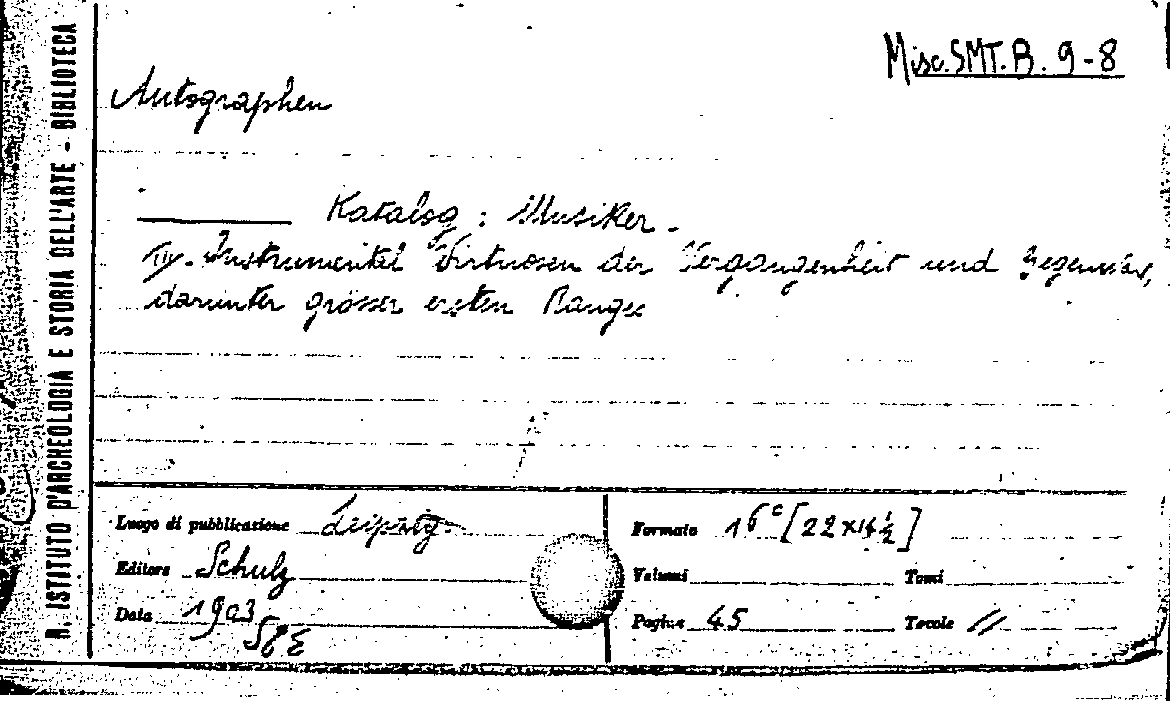 Misc. SMT. B. 9-8
R. ISTITUTO D'ARCHEOLOGIA E STORIA DELL'ARTE - BIBLIOTECA
Autographen
Katalog : Musiker.
IV. Instrumental Virtuosen der Vergangenheit und Gegenwar,
darunter grösser ersten Ranges
Luogo di pubblicazione Leipzig.
Editore Schulz
Data 1903
Formato 16° [22 x 14 ½]
Volumi Tomi
Pagine 45 Tavole //